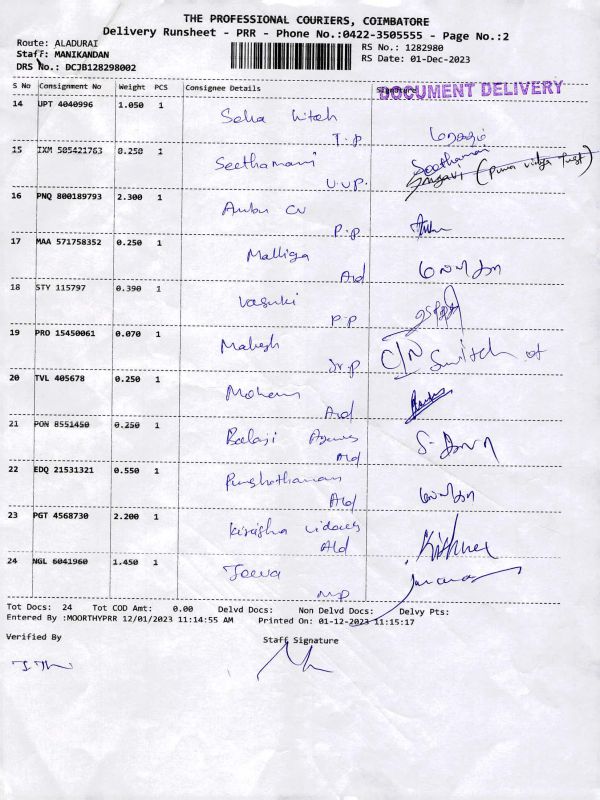 THE PROFESSIONAL COURIERS, COIMBATORE
Delivery Runsheet - PRR - Phone No.:0422-3505555 - Page No.:2
Route: ALADURAI
RS No.: 1282980
Staff: MANIKANDAN
RS Date: 01-Dec-2023
DRS No.: DCJB128298002
S No Consignment No Weight PCS Consignee Details Signature
DOCUMENT DELIVERY
14 UPT 4040996 1.050 1
T.p
15 IXM 505421763 0.250 1 Seethamani Seethamai
U.U.P.
16 PNQ 800189793 2.300 1 Anbu CV
P.P
17 MAA 571758352 0.250 1 Malliga
Ald
18 STY 115797 0.390 1 Vasuki
P.P
19 PRO 15450061 0.070 1 Mahesh C/N Switch of
Jr.p
20 TVL 405678 0.250 1 Mohan
Ald
21 PON 8551450 0.250 1 Balaji
Ald
22 EDQ 21531321 0.550 1 Purushothaman
Ald
23 PGT 4568730 2.200 1
Ald
24 NGL 6041960 1.450 1 Jeeva
M.P
Tot Docs: 24 Tot COD Amt: 0.00 Delvd Docs: Non Delvd Docs: Delvy Pts:
Entered By :MOORTHYPRR 12/01/2023 11:14:55 AM Printed On: 01-12-2023 11:15:17
Verified By Staff Signature